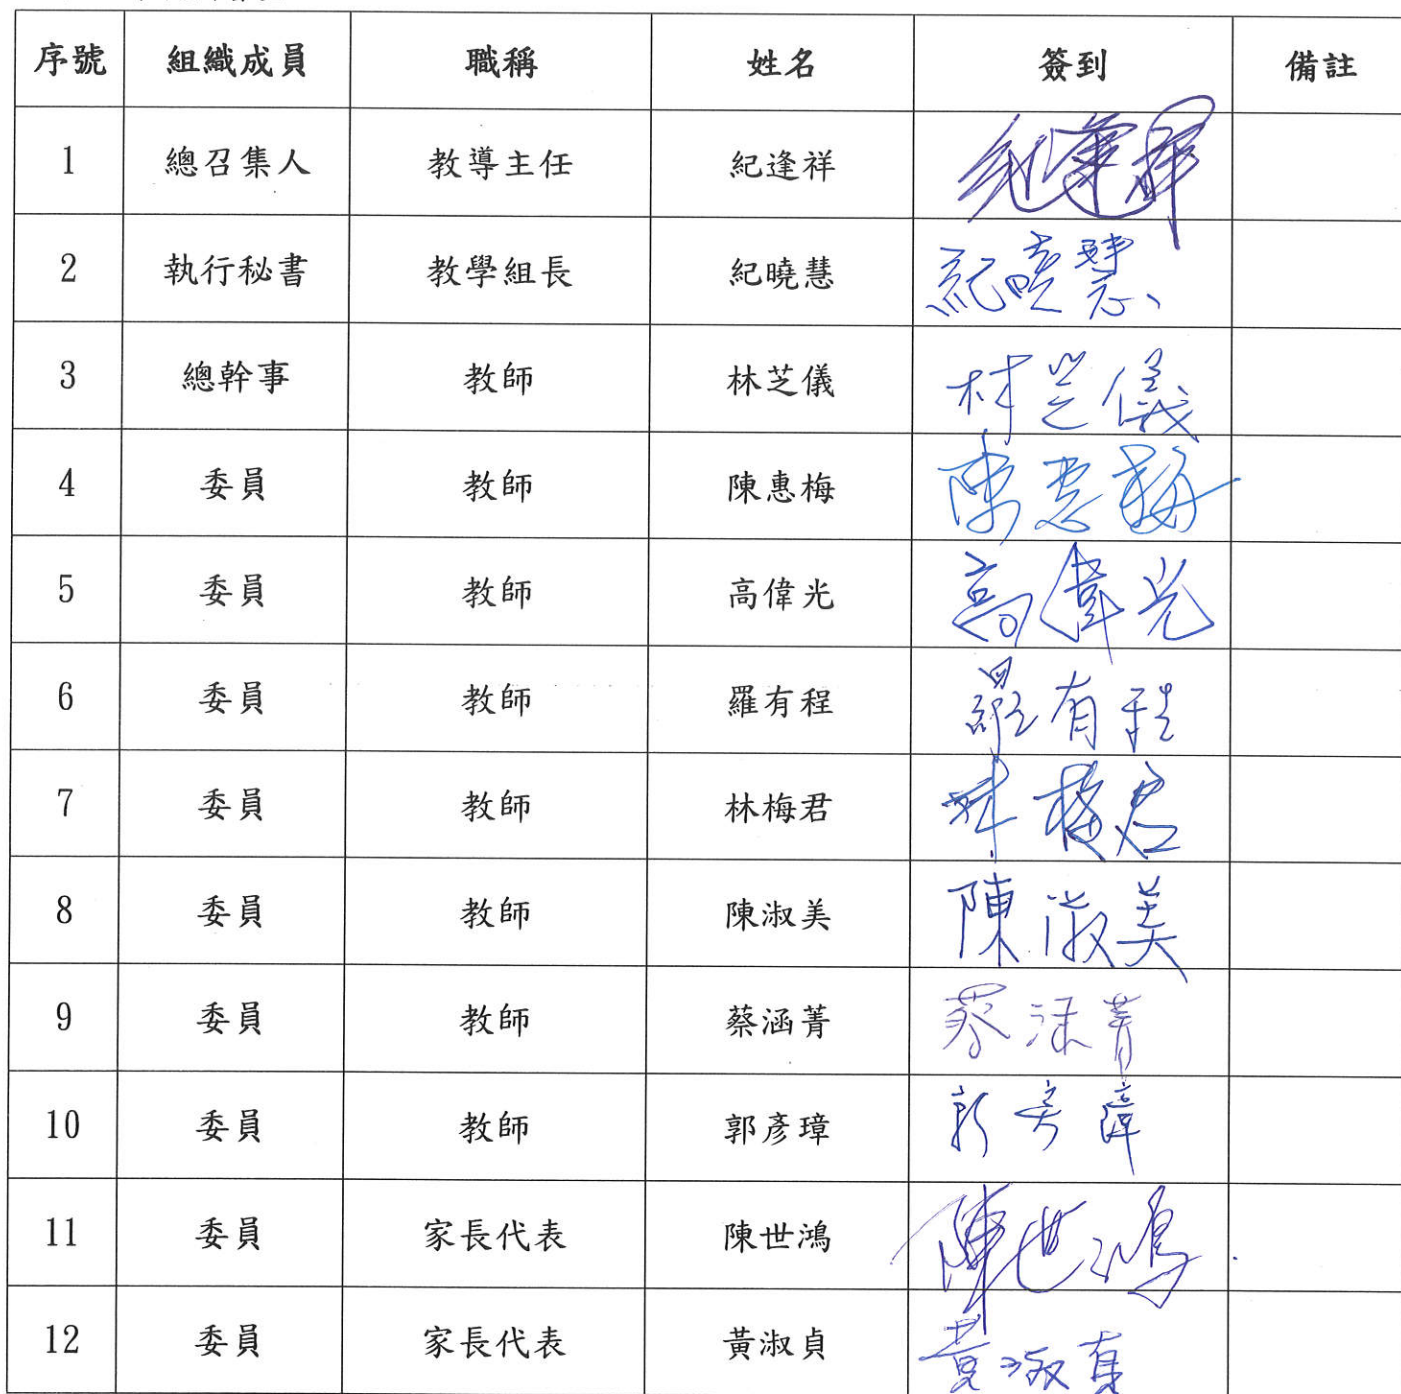 序號 組織成員 職稱 姓名 簽到 備註
1 總召集人 教導主任 紀逢祥 紀逢祥
2 執行秘書 教學組長 紀曉慧 紀曉慧
3 總幹事 教師 林芝儀 林芝儀
4 委員 教師 陳惠梅 陳惠梅
5 委員 教師 高偉光 高偉光
6 委員 教師 羅有程 羅有程
7 委員 教師 林梅君 林梅君
8 委員 教師 陳淑美 陳淑美
9 委員 教師 蔡涵菁 蔡涵菁
10 委員 教師 郭彥璋 郭彥璋
11 委員 家長代表 陳世鴻 陳世鴻
12 委員 家長代表 黃淑貞 黃淑貞